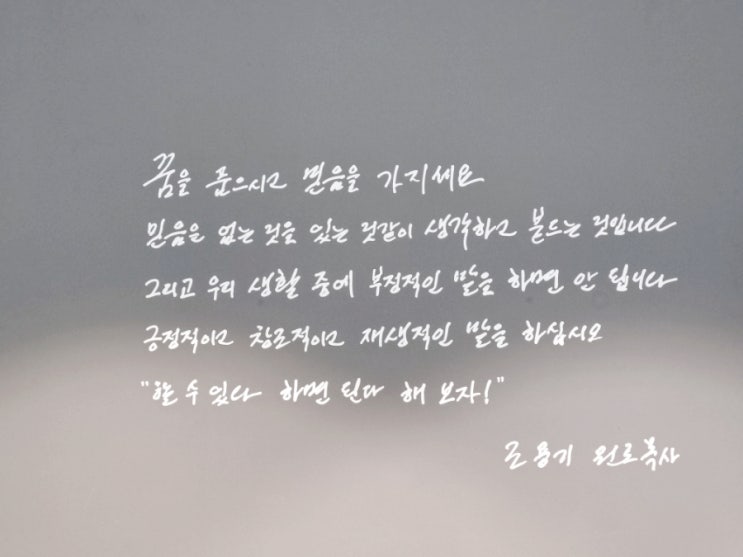 꿈을 품으시고 믿음을 가지세요
믿음은 없는 것을 있는 것같이 생각하고 붙드는 것입니다
그리고 우리 생활 중에 부정적인 말을 하면 안 됩니다
긍정적이고 창조적이고 재생적인 말을 하십시오
"할 수 있다 하면 된다 해 보자!"
조용기 원로목사